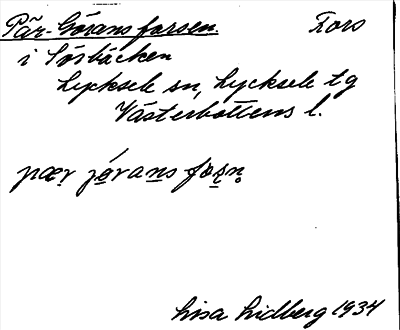 Pär-Görans forsen. Fors
i Sörbäcken
Lycksele sn, Lycksele tg
Västerbottens l.
pær jörans forsn
Lisa Lidberg 1934